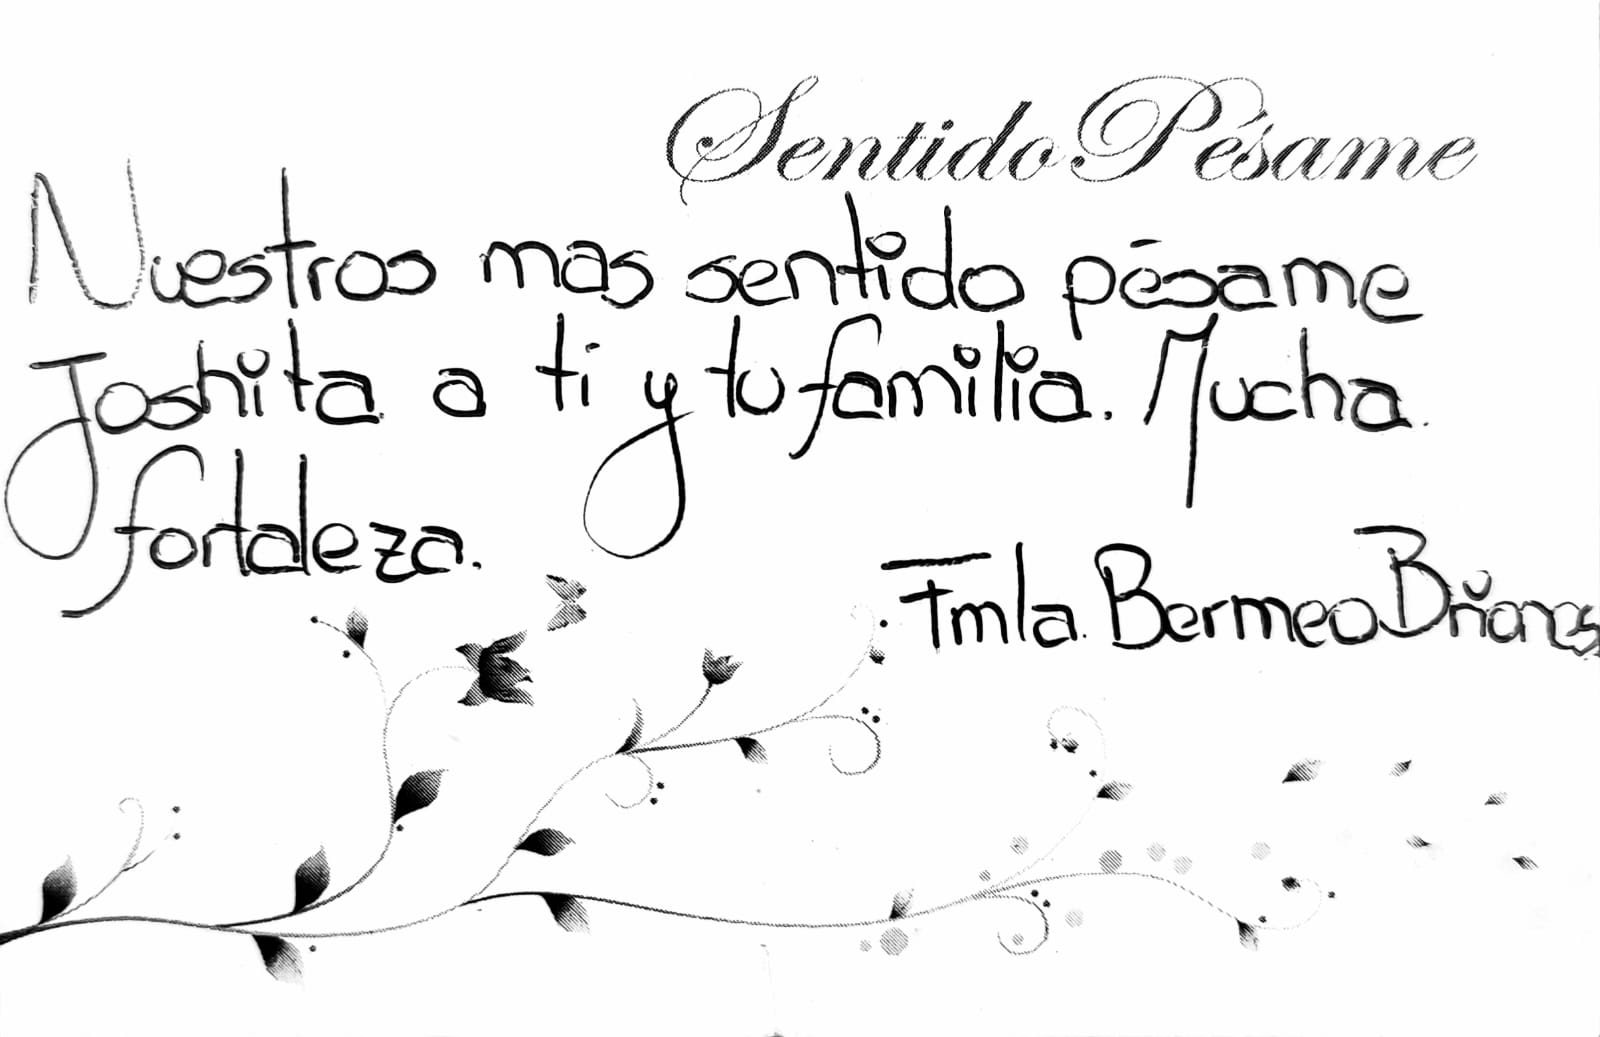 Sentido Pésame
Nuestros mas sentido pésame
Joshita a ti y tu familia. Mucha
fortaleza.
Fmla. Bermeo Briones